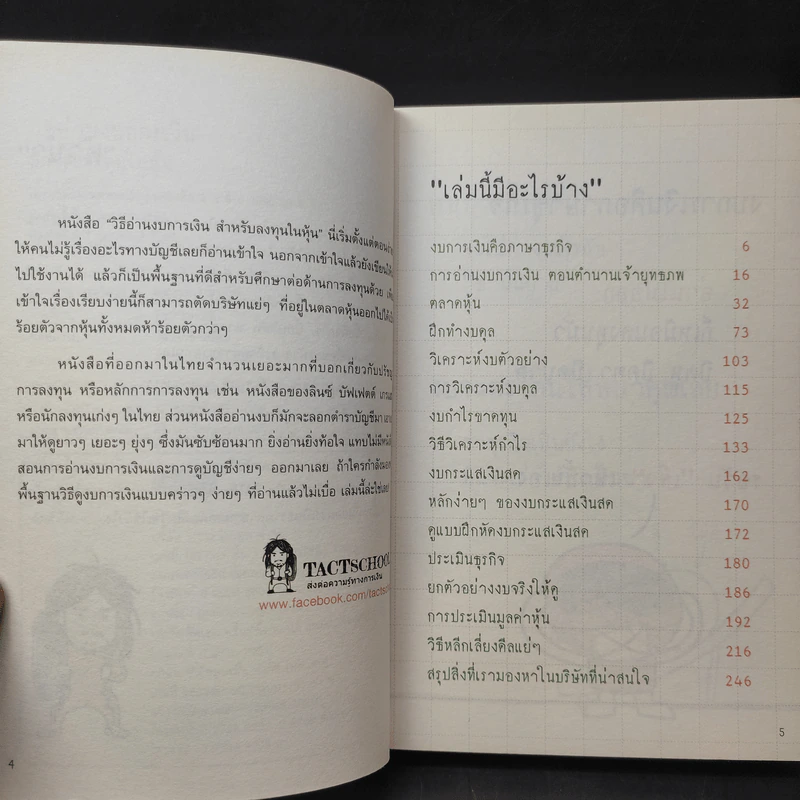 หนังสือ "วิธีอ่านงบการเงิน สำหรับลงทุนในหุ้น" นี่เริ่มตั้งแต่ตอน
ให้คนไม่รู้เรื่องอะไรทางบัญชีเลยก็อ่านเข้าใจ นอกจากเข้าใจแล้วยังเขียน
ไปใช้งานได้ แล้วก็เป็นพื้นฐานที่ดีสำหรับศึกษาต่อด้านการลงทุนด้วย
เข้าใจเรื่องเรียบง่ายนี้ก็สามารถตัดบริษัทแย่ๆ ที่อยู่ในตลาดหุ้นออกไปได้
ร้อยตัวจากหุ้นทั้งหมดห้าร้อยตัวกว่าๆ
หนังสือที่ออกมาในไทยจำนวนเยอะมากที่บอกเกี่ยวกับ
การลงทุน หรือหลักการการลงทุน เช่น หนังสือของลินซ์ บัฟเฟตต์
หรือนักลงทุนเก่งๆ ในไทย ส่วนหนังสืออ่านงบก็มักจะลอกตำราบัญชีมา
มาให้ดูยาวๆ เยอะๆ ยุ่งๆ ซึ่งมันซับซ้อนมาก ยิ่งอ่านยิ่งท้อใจ แทบไม่มี
สอนการอ่านงบการเงินและการดูบัญชีง่ายๆ ออกมาเลย ถ้าใครกำลัง
พื้นฐานวิธีดูงบการเงินแบบคร่าวๆ ง่ายๆ ที่อ่านแล้วไม่เบื่อ เล่มนี้ล่ะใช่เลย
TACTSCHOOL
ส่งต่อความรู้ทางการเงิน
www.facebook.com/tacts
4
"เล่มนี้มีอะไรบ้าง"
งบการเงินคือภาษาธุรกิจ 6
การอ่านงบการเงิน ตอนตำนานเจ้ายุทธภพ 16
ตลาดหุ้น 32
ฝึกทำงบดุล 73
วิเคราะห์งบตัวอย่าง 103
การวิเคราะห์งบดุล 115
งบกำไรขาดทุน 125
วิธีวิเคราะห์กำไร 133
งบกระแสเงินสด 162
หลักง่ายๆ ของงบกระแสเงินสด 170
ดูแบบฝึกหัดงบกระแสเงินสด 172
ประเมินธุรกิจ 180
ยกตัวอย่างงบจริงให้ดู 186
การประเมินมูลค่าหุ้น 192
วิธีหลีกเลี่ยงดีลแย่ๆ 216
สรุปสิ่งที่เรามองหาในบริษัทที่น่าสนใจ 246
5